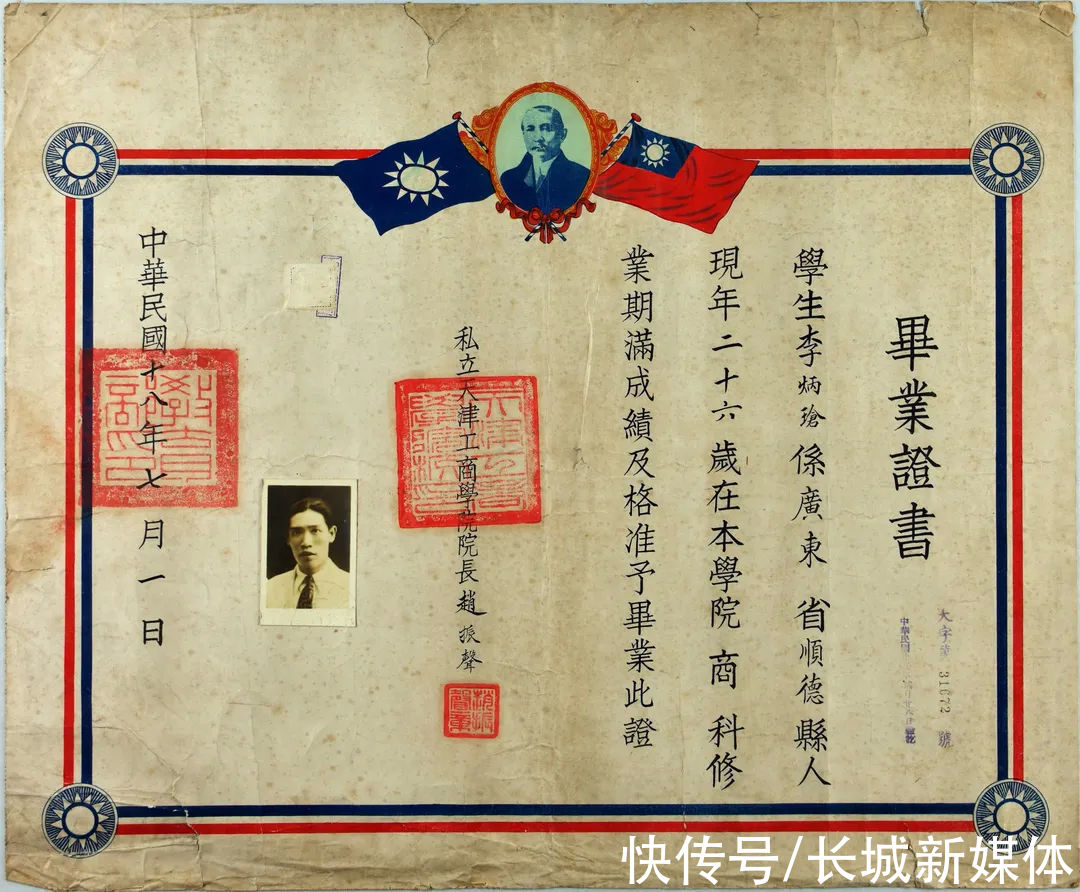 畢業證書
學生李炳瑲係廣東省順德縣人
現年二十六歲在本學院商科修
業期滿成績及格准予畢業此證
私立天津工商學院院長趙振聲
中華民國十八年七月一日
大字第31672號
中華民國
趙振聲章
快传号/长城新媒体